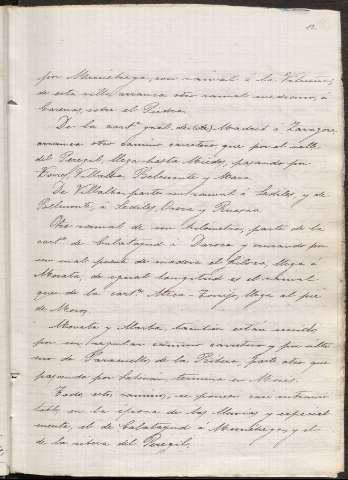 12
por Munébrega, con ramal á la Vilueña;
de esta villa arranca otro ramal
Carenas, sobre el Piedra.
De la carr.ª gral. de Madrid á Zaragoza
arranca otro camino carretero que por el valle
del Peregil, llega hasta Miedes, pasando por
Villalba, Belmonte y Mara.
De Villalba parte un ramal á Sediles, y de
Belmonte, á Sediles, Orera y Ruesca.
Otro ramal de un kilometro, parte de la
carr.ª de Calatayud á Daroca y cruzando por
un mal puente de madera el Jiloca, llega á
Morata, de igual longitud es el ramal
que de la carr.ª Ateca-Torrijo, llega al pié
de Moros.
Morata y Maeba, tambien estan unidos
por un regular camino carretero y por ultimo
de Paracuellos de la Ribera, parte otro, que
pasando por Sabiñan, termina en Morés.
Todos estos caminos, se ponen casi intransi-
tables en la epoca de las lluvias y especial-
mente, el de Calatayud á Munébrega, y el
de la ribera del Peregil.